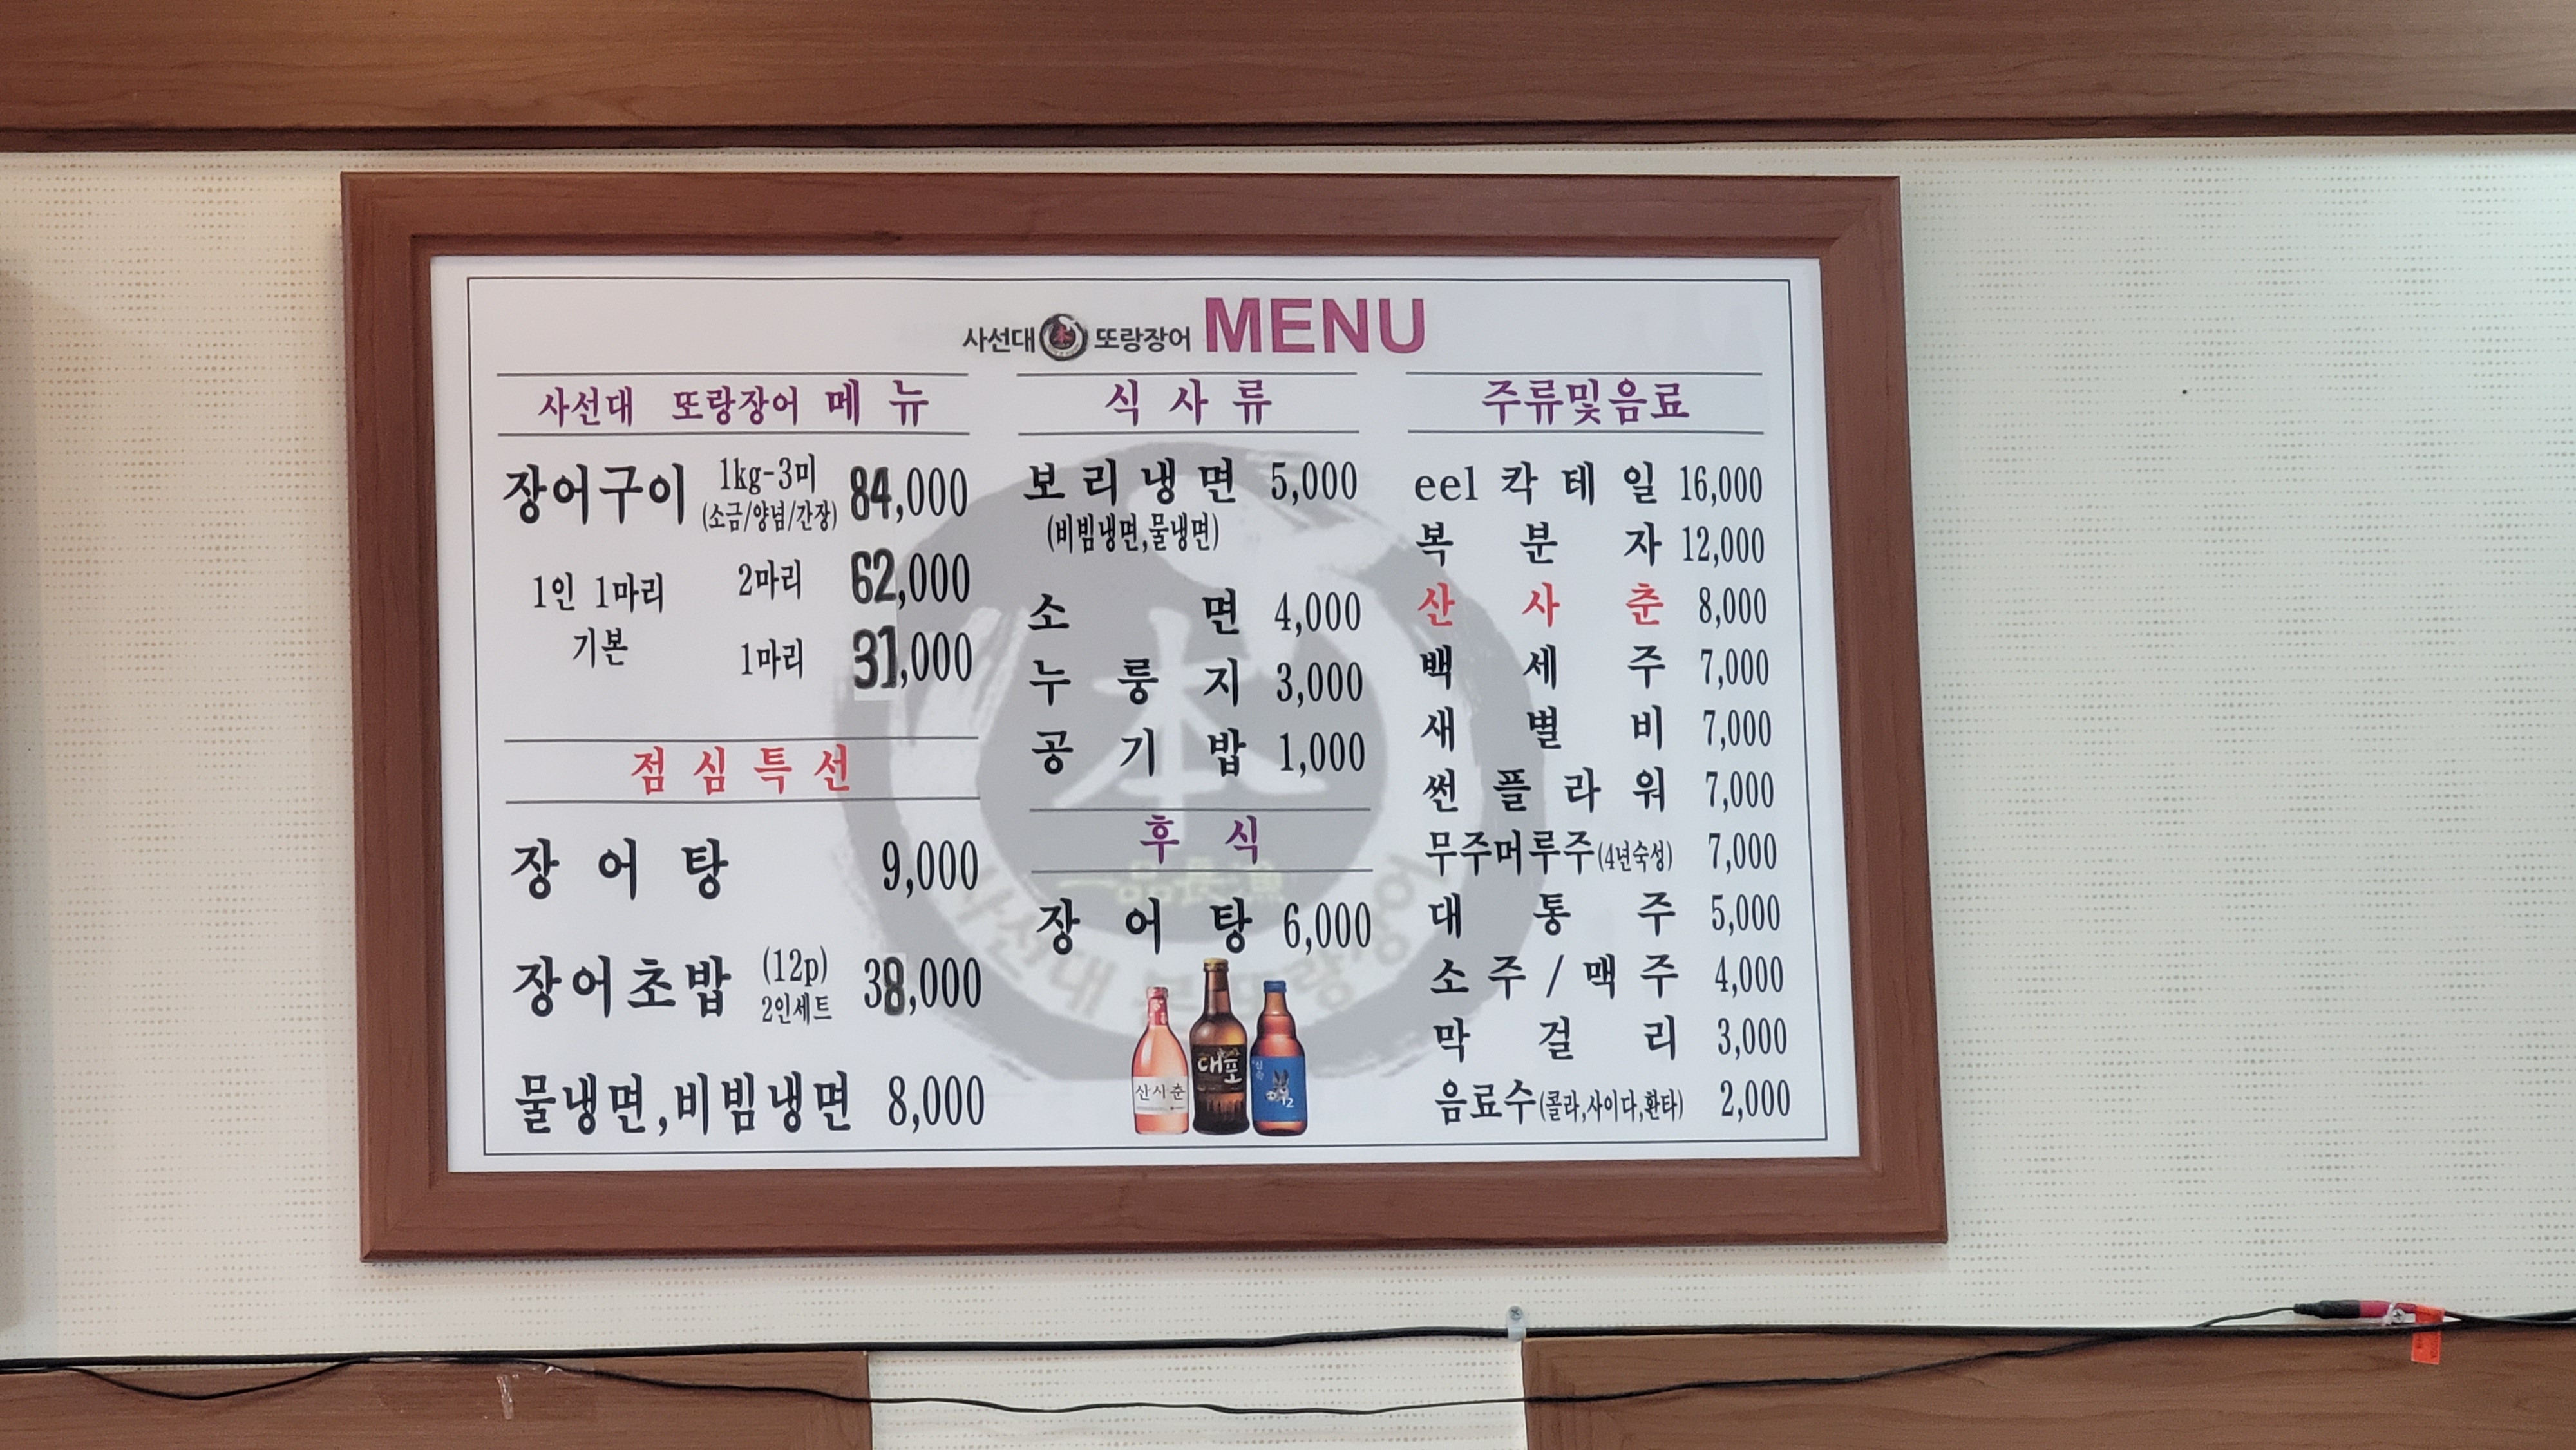 사선대 또랑장어 MENU
사선대 또랑장어 메뉴
장어구이 1kg-3미 84,000
(소금/양념/간장)
1인 1마리 기본
2마리 62,000
1마리 31,000
점심특선
장어탕 9,000
장어초밥 (12p) 2인세트 38,000
물냉면,비빔냉면 8,000
식사류
보리냉면 5,000
(비빔냉면,물냉면)
소면 4,000
누룽지 3,000
공기밥 1,000
후식
장어탕 6,000
주류및음료
eel 칵테일 16,000
복분자 12,000
산사춘 8,000
백세주 7,000
새별비 7,000
썬플라워 7,000
무주머루주(4년숙성) 7,000
대통주 5,000
소주/맥주 4,000
막걸리 3,000
음료수(콜라,사이다,환타) 2,000
本
사선대 본 또랑장어
산사춘
대포